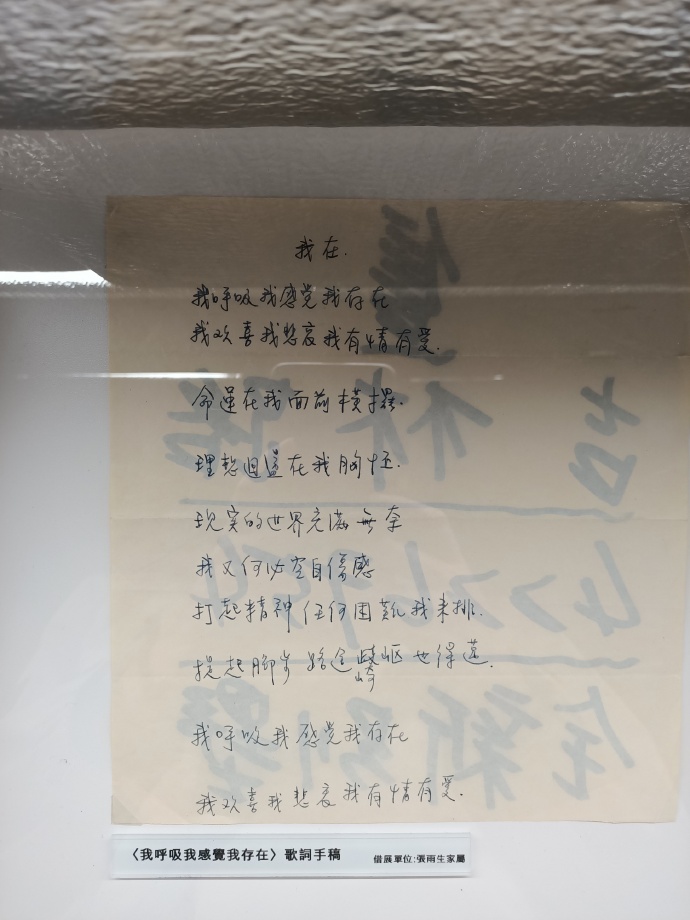 我在.
我呼吸我感觉我存在
我欢喜我悲哀我有情有爱.
命運在我面前橫擺.
理想迴盪在我胸怀.
现实的世界充滿無奈
我又何必空自傷感
打起精神任何困難我来排.
提起腳步 路途崎岖也得邁.
崎
我呼吸我感觉我存在
我欢喜我悲哀我有情有爱.
〈我呼吸我感覺我存在〉歌詞手稿 借展單位:張雨生家屬